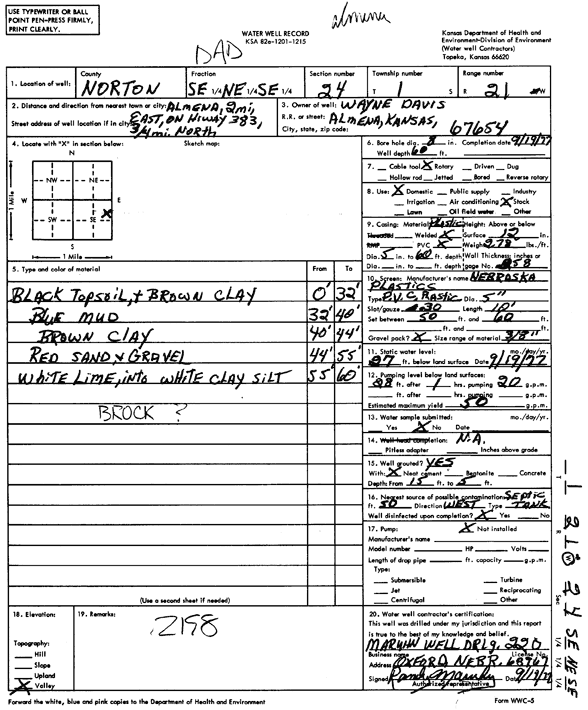 USE TYPEWRITER OR BALL
POINT PEN-PRESS FIRMLY,
PRINT CLEARLY.
almena
DAD
WATER WELL RECORD
KSA 82a-1201-1215
Kansas Department of Health and
Environment-Division of Environment
(Water well Contractors)
Topeka, Kansas 66620
1. Location of well:
County
NORTON
Fraction
SE 1/4 NE 1/4 SE 1/4
Section number
24
Township number
T 1 S
Range number
R 21 W
2. Distance and direction from nearest town or city: ALMENA, 2 mi,
Street address of well location if in city: EAST, ON HIWAY 383,
3/4 mi. NORTH
3. Owner of well: WAYNE DAVIS
R.R. or street: ALMENA, KANSAS,
City, state, zip code: 67654
4. Locate with "X" in section below:
Sketch map:
N
NW NE
W E
SW SE X
S
1 Mile
1 Mile
6. Bore hole dia. 8 in. Completion date 9/19/77
Well depth 60 ft.
7. Cable tool X Rotary Driven Dug
Hollow rod Jetted Bored Reverse rotary
8. Use: X Domestic Public supply Industry
Irrigation Air conditioning X Stock
Lawn Oil field water Other
9. Casing: Material Plastic Height: Above or below
Threaded Welded X Surface 12 in.
RMP PVC X Weight 2.78 lbs./ft.
Dia. 5 in. to 60 ft. depth Wall Thickness: inches or
Dia. in. to ft. depth gage No. .258
5. Type and color of material
From To
BLACK TOPSOIL, & BROWN CLAY 0' 32'
BLUE MUD 32' 40'
BROWN CLAY 40' 44'
RED SAND & GRAVEL 44' 55'
WHITE LIME, INTO WHITE CLAY SILT 55' 60'
BROCK ?
(Use a second sheet if needed)
10. Screen: Manufacturer's name NEBRASKA
PLASTICS
Type P.V.C. Plastic Dia. 5"
Slot/gauze .030 Length 10'
Set between 50 ft. and 60 ft.
ft. and ft.
Gravel pack? X Size range of material 3/8"
11. Static water level: mo./day/yr.
27 ft. below land surface Date 9/19/77
12. Pumping level below land surfaces:
28 ft. after 1 hrs. pumping 20 g.p.m.
ft. after hrs. pumping g.p.m.
Estimated maximum yield 50 g.p.m.
13. Water sample submitted: mo./day/yr.
Yes X No Date
14. Well head completion: N.A.
Pitless adapter Inches above grade
15. Well grouted? YES
With: X Neat cement Bentonite Concrete
Depth: From 15 ft. to 5 ft.
16. Nearest source of possible contamination: SEPTIC
ft. 50 Direction WEST Type TANK
Well disinfected upon completion? X Yes No
17. Pump: X Not installed
Manufacturer's name
Model number HP Volts
Length of drop pipe ft. capacity g.p.m.
Type:
Submersible Turbine
Jet Reciprocating
Centrifugal Other
18. Elevation:
Topography:
Hill
Slope
Upland
X Valley
19. Remarks:
2198
20. Water well contractor's certification:
This well was drilled under my jurisdiction and this report
is true to the best of my knowledge and belief.
MARWIN WELL DRLG. 220
Business name License No.
Address OXFORD, NEBR. 68967
Signed Date 9/19/77
Authorized representative
Forward the white, blue and pink copies to the Department of Health and Environment
Form WWC-5
T 1
R 21 W
Sec 24
1/4 1/4 1/4
SE NE SE